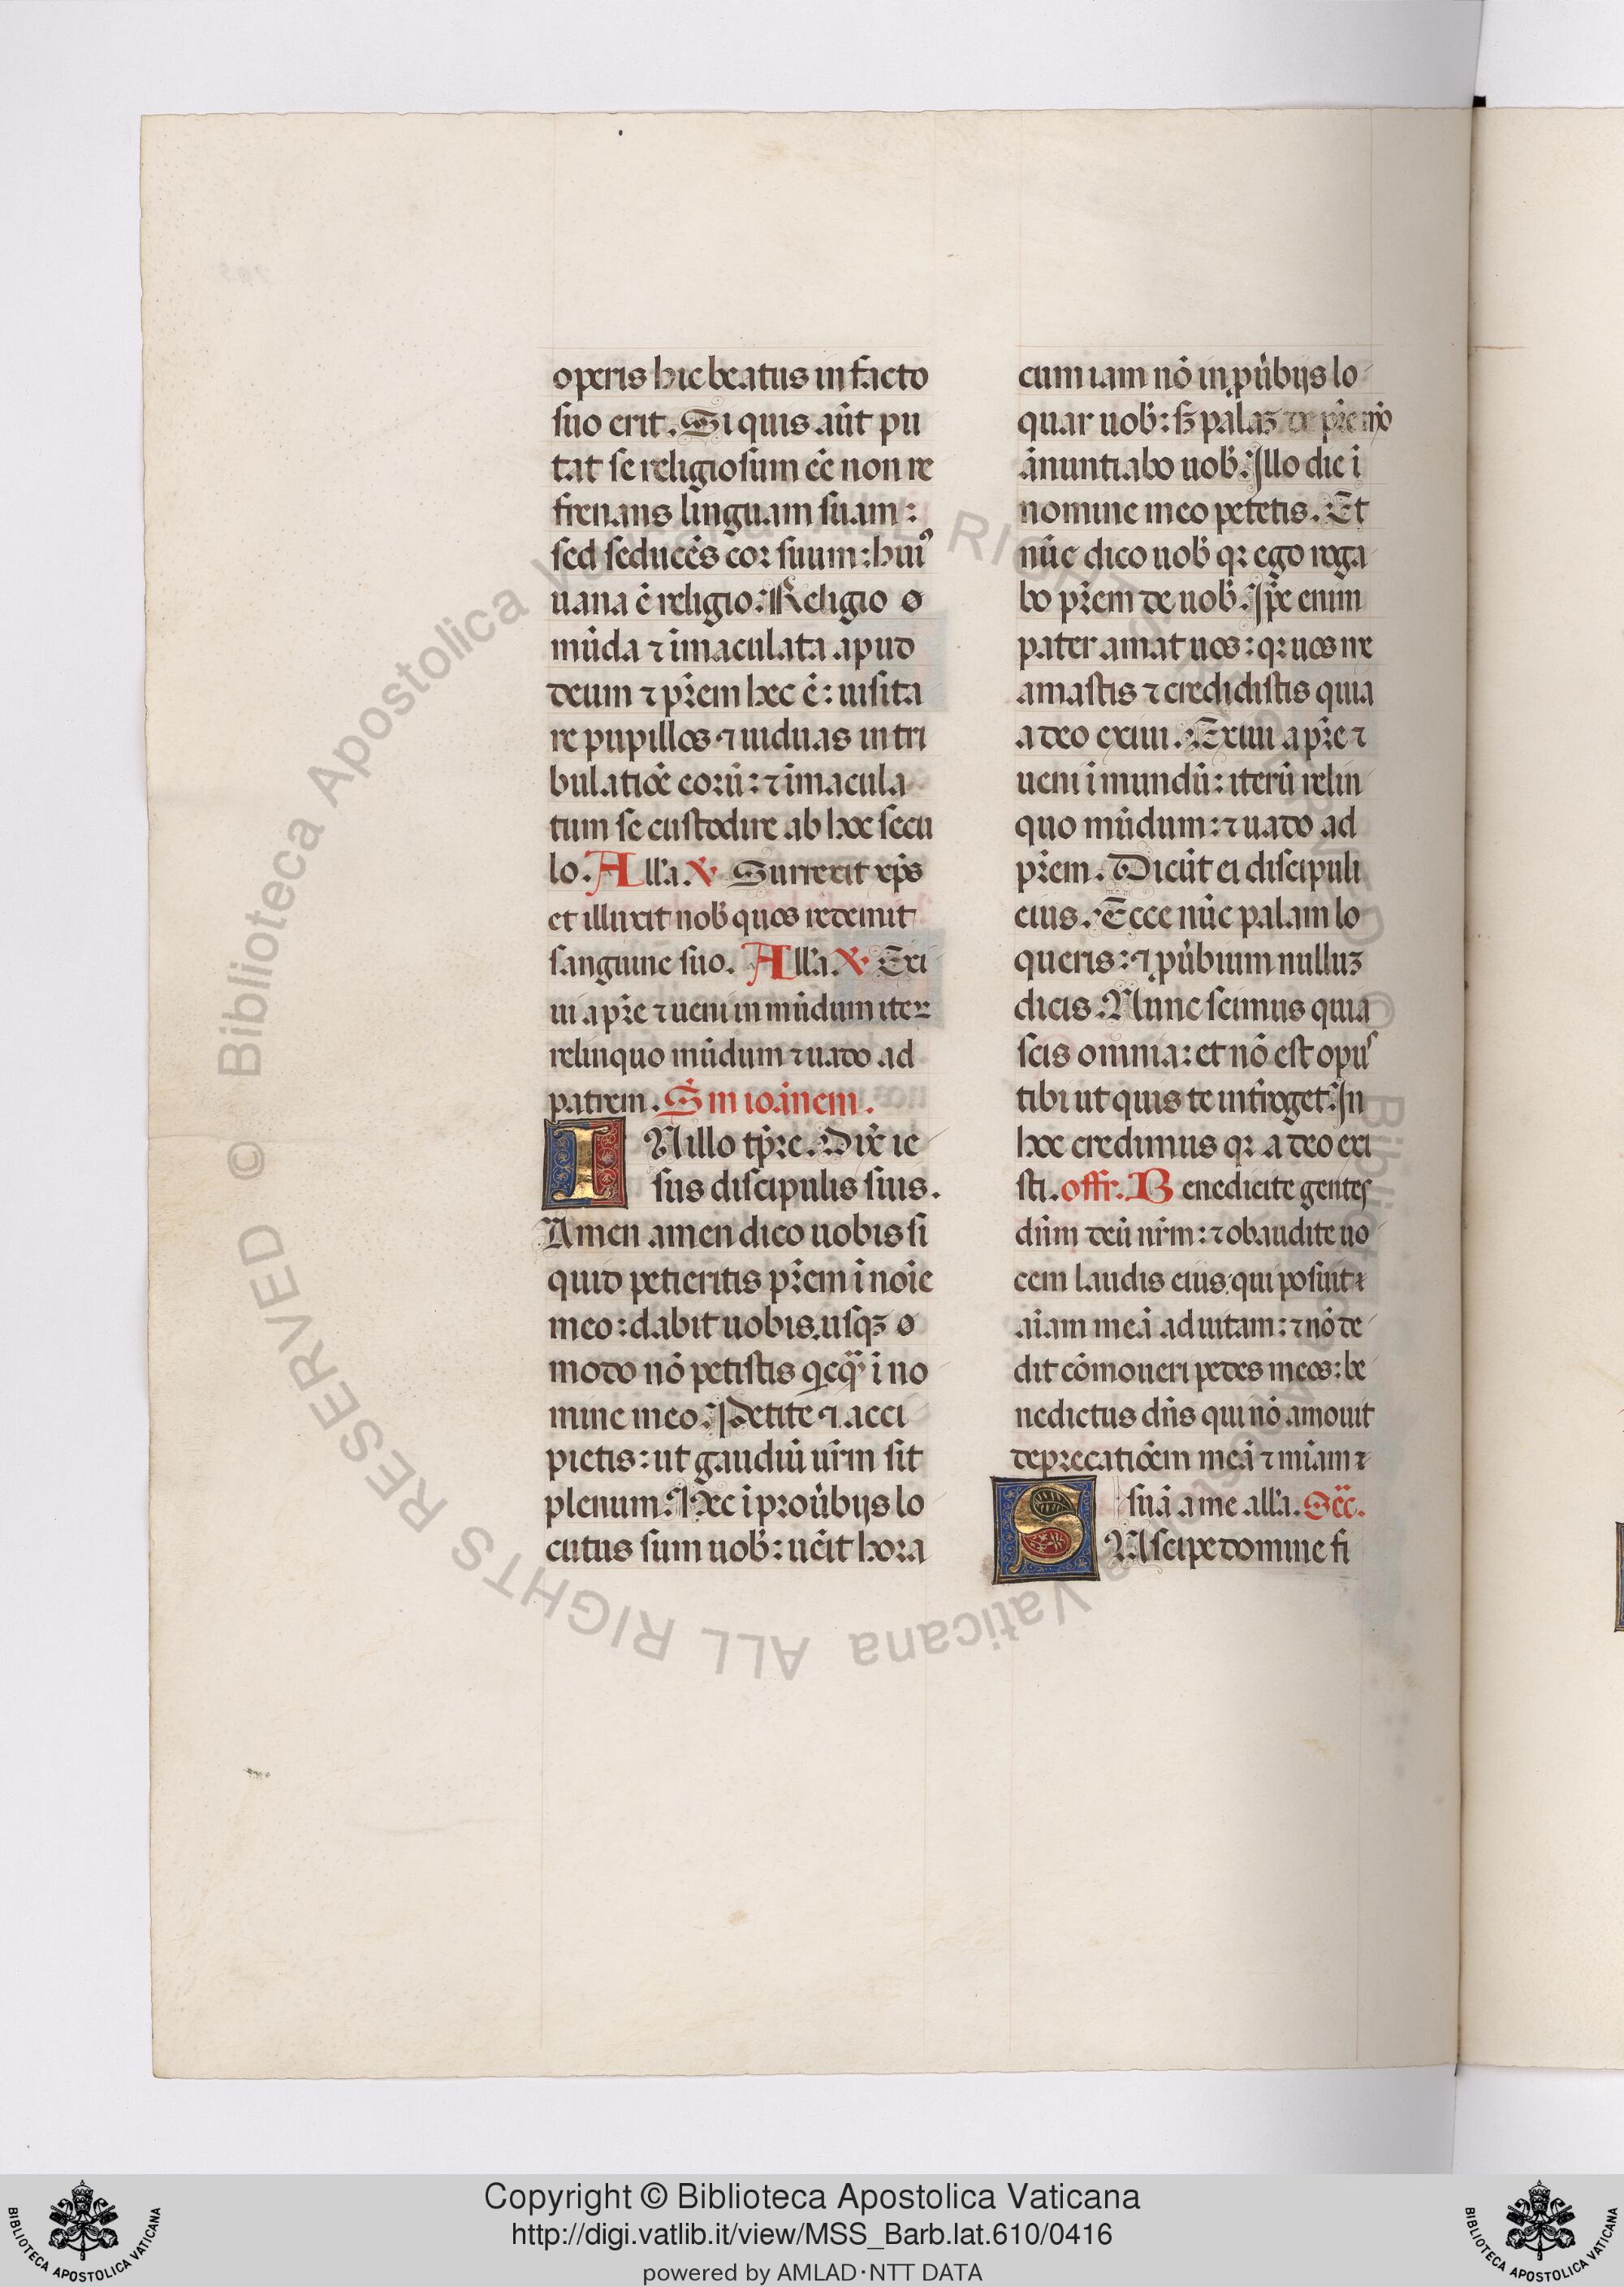 operis hic beatus in facto
suo erit. Si quis aūt pu
tat se religiosum eē non re
frenans linguam suam:
sed seducēs cor suum: huiꝰ
uana ē religio: Religio
mūda ⁊ īmaculata apud
deum ⁊ pr̄em hec ē: uisita
re pupillos ⁊ uiduas in tri
bulatiōe eorū: ⁊ īmacula
tum se custodire ab hoc secu
lo. All'a. ℣ Surrexit xp̄s
et illuxit nob̄ quos redemit
sanguine suo. All'a. ℣ Exi
ui a pr̄e ⁊ ueni in mūdum iteꝝ
relinquo mūdum ⁊ uado ad
patrem. S̄ m ioānem.
IN illo tp̄re. Dix̄ ie
sus discipulis suis.
Amen amen dico uobis si
quid petieritis pr̄em ī noīe
meo: dabit uobis. usqꝫ
modo nō petistis ī no
mine meo: Petite ⁊ acci
pietis: ut gaudiū ur̄m sit
plenum: Hec ī prouꝰbijs lo
cutus sum uob̄: uēit hora
cum iam nō in ꝓuꝰbijs lo
quar uob̄: sꝫ palaꝫ de pr̄e
ānuntiabo uob̄: Illo die ī
nomine meo petetis. Et
nūc dico uob̄ qꝛ ego roga
bo pr̄em de uob̄. Ip̄e enim
pater amat uos: qꝛ uos me
amastis ⁊ credidistis quia
a deo exiui. Exiui a pr̄e ⁊
ueni ī mundū: iterū relin
quo mūdum: ⁊ uado ad
pr̄em. Dicūt ei discipuli
eius. Ecce nūc palam lo
queris: ⁊ ꝓuꝰbium nulluꝫ
dicis. Nunc scimus quia
scis omnia: et nō est opus
tibi ut quis te int̄roget. In
hoc credimus qꝛ a deo exi
sti. offr. Benedicite gentes
dn̄m deū nr̄m: ⁊ obaudite uo
cem laudis eius: qui posuit
aīam meā ad uitam: ⁊ nō de
dit cōmoueri pedes meos: be
nedictus dn̄s qui nō amouit
deprecatiōem meā ⁊ mīam
suā a me all'a. Sec̄.
SUscipe domine fi
© Biblioteca Apostolica Vaticana ALL RIGHTS RESERVED
Copyright © Biblioteca Apostolica Vaticana
http://digi.vatlib.it/view/MSS_Barb.lat.610/0416
powered by AMLAD·NTT DATA
BIBLIOTECA APOSTOLICA VATICANA
BIBLIOTECA APOSTOLICA VATICANA